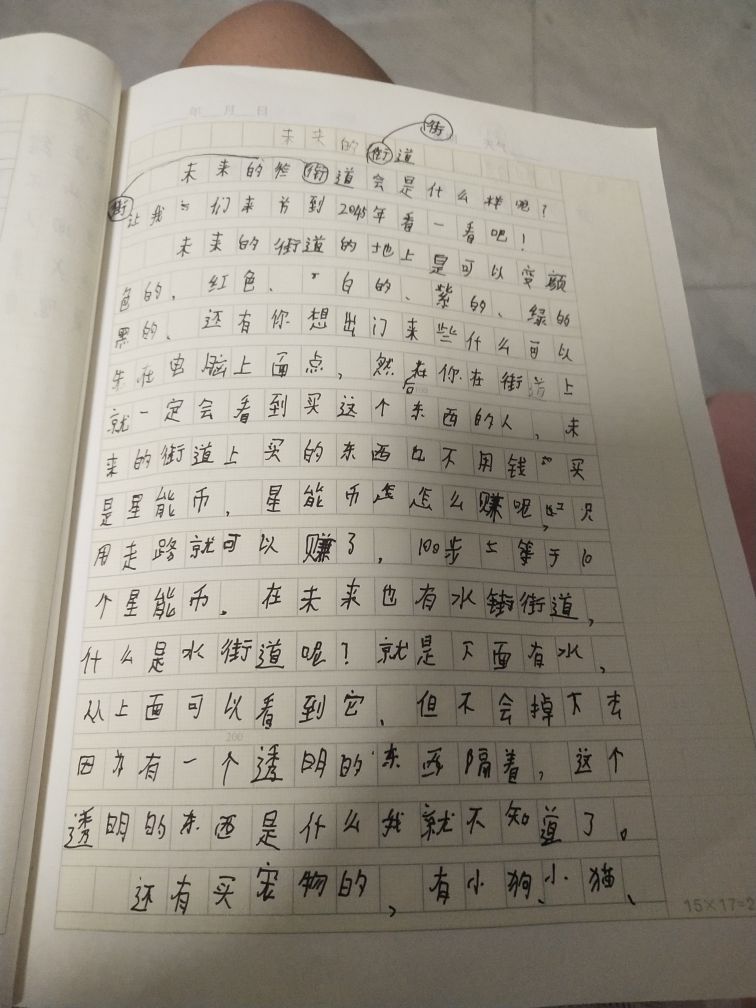 年 月 日
街
天气
未来的街道
未来的街道会是什么样呢?
街
让我们来到2045年看一看吧!
未来的街道的地上是可以变颜
色的,红色、白的、紫的、绿的
黑的、还有你想出门来些什么可以
先在电脑上面点,然后你在街道上
就一定会看到买这个东西的人,未
来的街道上买的东西也不用钱买
是星能币,星能币怎怎么赚呢,只
用走路就可以赚了,100步等于10
个星能币。在未来也有水街街道,
什么是水街道呢?就是下面有水,
从上面可以看到它,但不会掉下去
因为有一个透明的东西隔着,这个
200
透明的东西是什么我就不知道了。
还有买宠物的,有小狗、小猫、
15×17=2